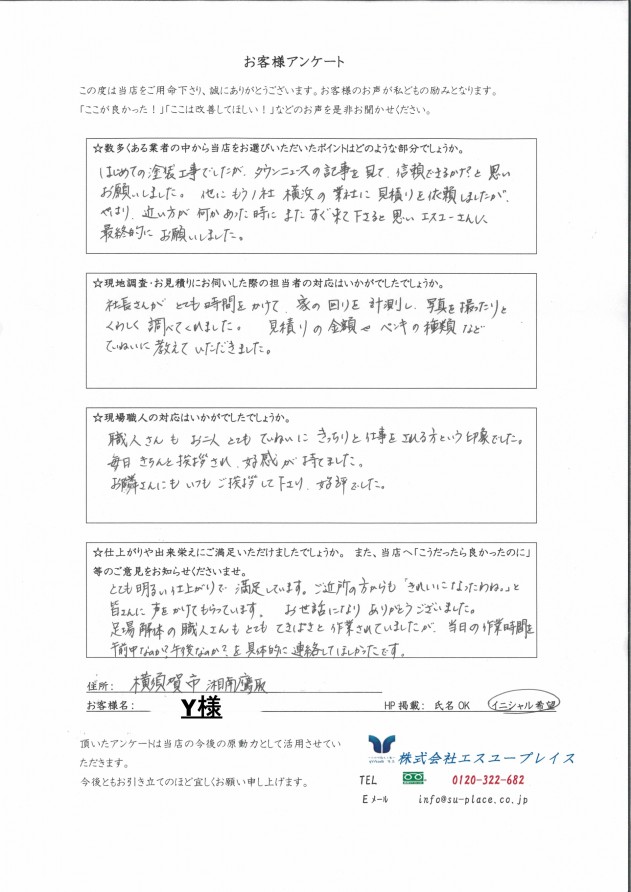 お客様アンケート
この度は当店をご用命下さり、誠にありがとうございます。お客様のお声が私どもの励みとなります。
「ここが良かった！」「ここは改善してほしい！」などのお声を是非お聞かせください。
☆数多くある業者の中から当店をお選びいただいたポイントはどのような部分でしょうか。
はじめての塗装工事でしたが、タウンニュースの記事を見て、信頼できるかな？と思い
お願いしました。 他にもう1社 横浜の業社に見積りを依頼しましたが、
やはり、近い方が何かあった時に またすぐ来て下さると思い エスユーさんに
最終的に お願いしました。
☆現地調査・お見積りにお伺いした際の担当者の対応はいかがでしたでしょうか。
社長さんが とても時間をかけて、家の回りを計測し、写真を撮ったりと
くわしく調べてくれました。 見積りの金額や ペンキの種類など
ていねいに教えていただきました。
☆現場職人の対応はいかがでしたでしょうか。
職人さんも お二人とても ていねいに きっちりと仕事をされる方という印象でした。
毎日 きちんと挨拶され、好感が持てました。
お隣さんにも いつもご挨拶して下さり、好評でした。
☆仕上がりや出来栄えにご満足いただけましたでしょうか。 また、当店へ「こうだったら良かったのに」
等のご意見をお知らせくださいませ。
とても明るい仕上がりで 満足しています。ご近所の方からも「きれいになったわね。」と
皆さんに声をかけてもらっています。 お世話になり ありがとうございました。
足場解体の職人さんもとても てきぱきと作業されていましたが、当日の作業時間を
午前中なのか？午後なのか？を具体的に連絡してほしかったです。
住所： 横須賀市 湘南鷹取
お客様名： Y様 HP掲載： 氏名OK イニシャル希望
頂いたアンケートは当店の今後の原動力として活用させてい
ただきます。
今後ともお引き立てのほど宜しくお願い申し上げます。
株式会社エスユープレイス
TEL 0120-322-682
Eメール info@su-place.co.jp